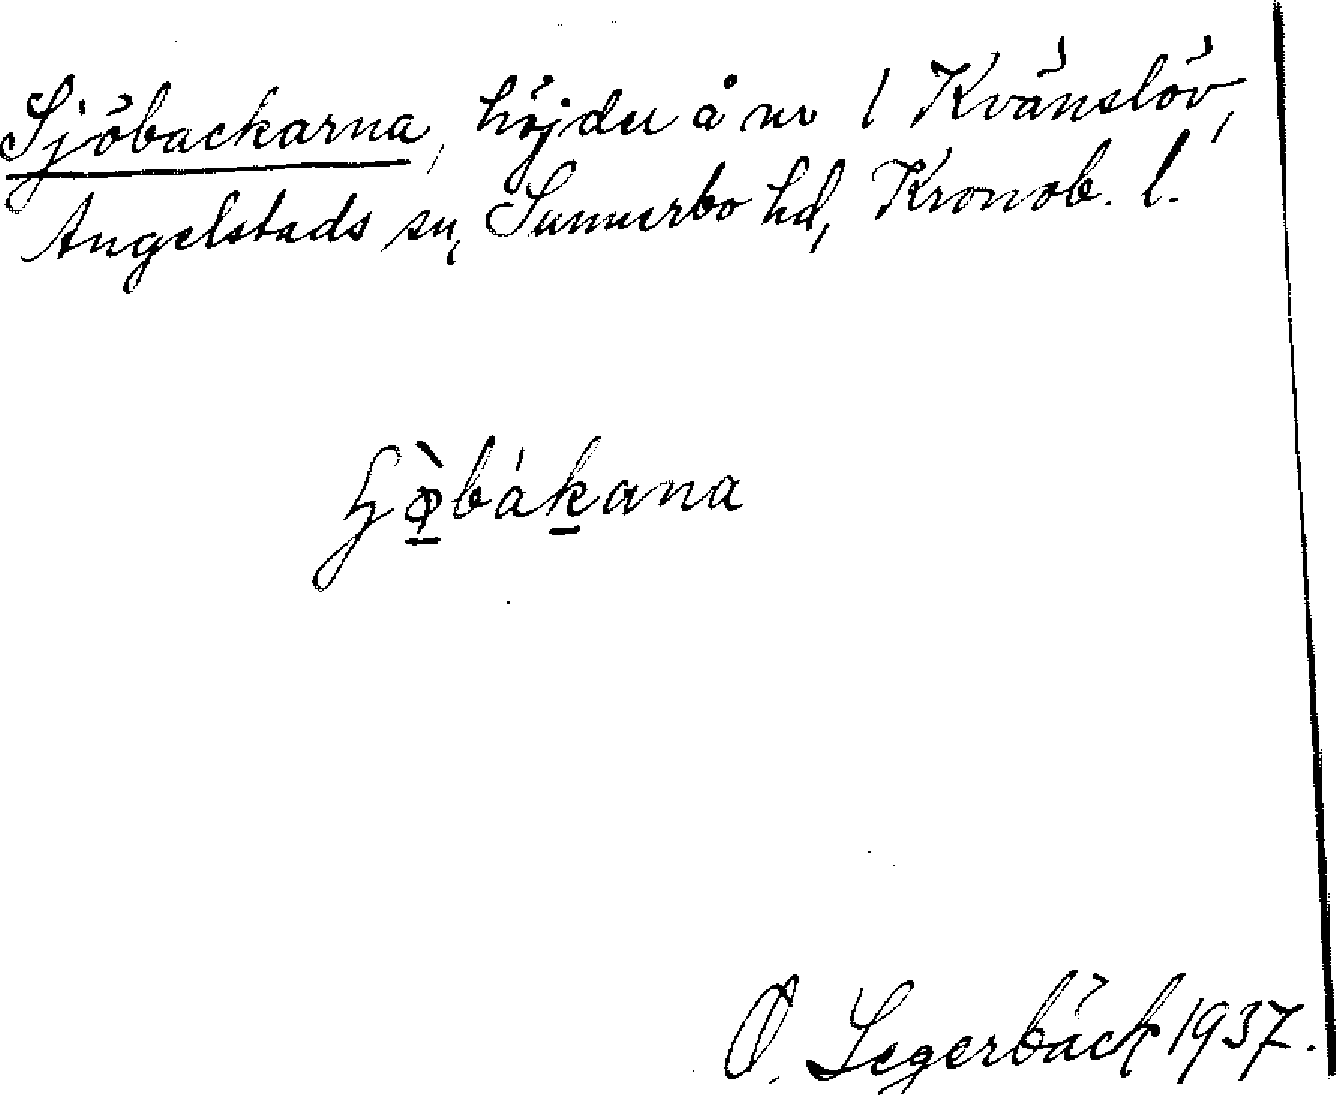 Sjöbackarna, höjder å nr 1 Kvänslöv,
Angelstads sn, Sunnerbo hd, Kronob. l.
ɧø̱̀bák̠ana
O. Segerbäck 1937.